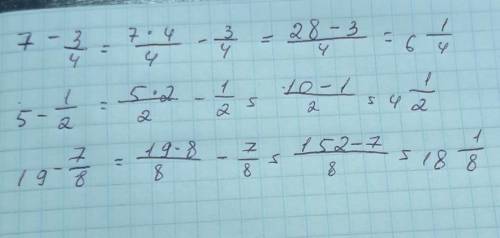 7 - 3/4 = 7·4/4 - 3/4 = 28-3/4 = 6 1/4
5 - 1/2 = 5·2/2 - 1/2 = 10-1/2 = 4 1/2
19 - 7/8 = 19·8/8 - 7/8 = 152-7/8 = 18 1/8